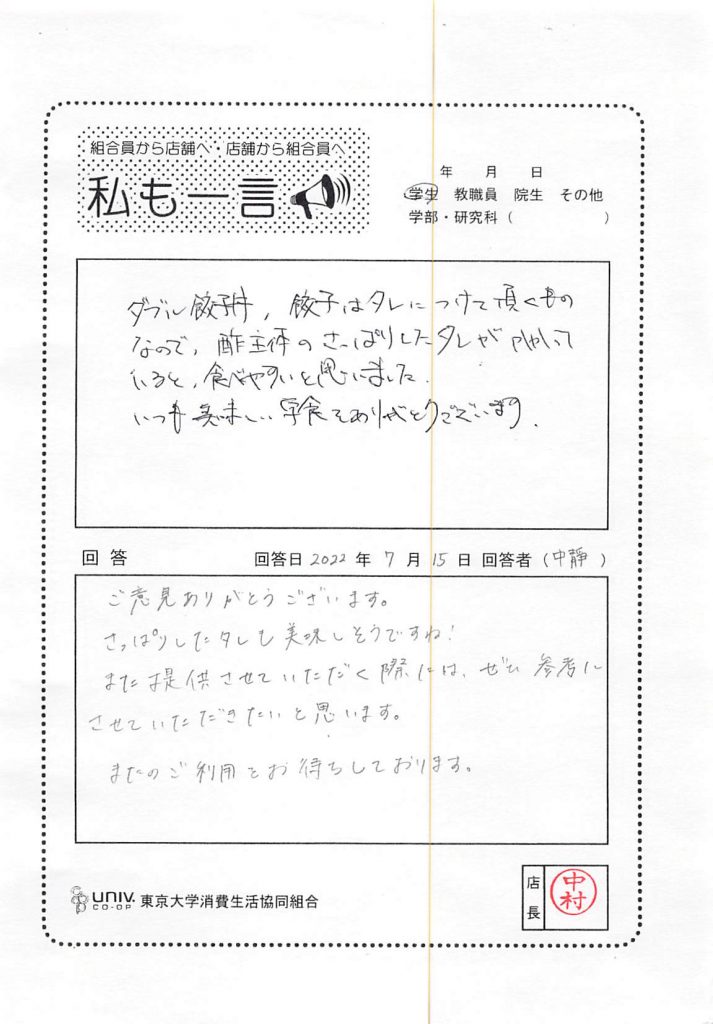 組合員から店舗へ・店舗から組合員へ
私も一言
年 月 日
学生 教職員 院生 その他
学部・研究科( )
ダブル餃子丼, 餃子はタレにつけて頂くもの
なので, 酢主体のさっぱりしたタレがかかって
いると, 食べやすいと思いました.
いつも美味しい学食をありがとうございます.
回答 回答日 2022 年 7 月 15 日 回答者 (中靜)
ご意見ありがとうございます。
さっぱりしたタレも美味しそうですね!
また提供させていただく際には、ぜひ参考に
させていただきたいと思います。
またのご利用をお待ちしております。
UNIV. CO-OP 東京大学消費生活協同組合
店長 中村